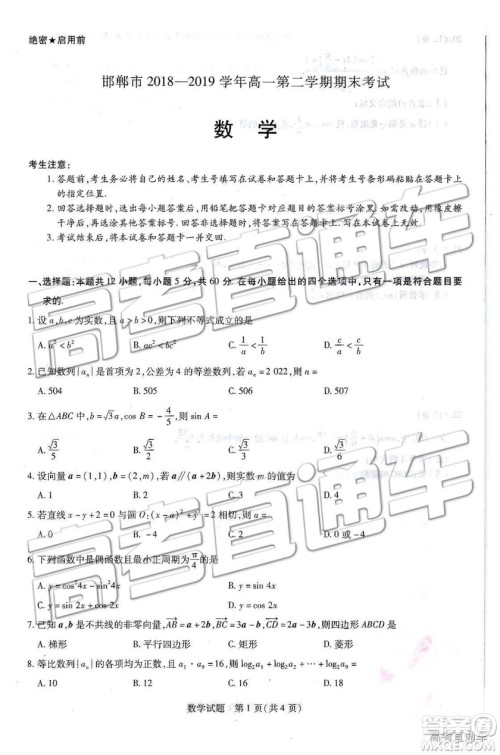 绝密★启用前
邯郸市 2018—2019 学年高一第二学期期末考试
数 学
考生注意：
1. 答题前，考生务必将自己的姓名、考生号填写在试卷和答题卡上，并将考生号条形码粘贴在答题卡上
的指定位置.
2. 回答选择题时，选出每小题答案后，用铅笔把答题卡对应题目的答案标号涂黑，如需改动，用橡皮擦
干净后，再选涂其他答案标号.回答非选择题时，将答案写在答题卡上.写在本试卷上无效.
3. 考试结束后，将本试卷和答题卡一并交回.
一、选择题：本题共 12 小题，每小题 5 分，共 60 分.在每小题给出的四个选项中，只有一项是符合题目要
求的.
1. 设 a,b,c 为实数，且 a＞b＞0，则下列不等式成立的是
A. a²＜b² B. ac²＜bc² C. 1/a＜1/b D. c/a＜c/b
2. 已知数列{aₙ}是首项为 2，公差为 4 的等差数列，若 aₙ=2 022，则 n=
A. 504 B. 505 C. 506 D. 507
3. 在△ABC 中，
4. 设向量 a=(1,1)，b=(2,m)，若 a∥(a+2b)，则实数 m 的值为
A. 1 B. 2 C. 3 D. 4
5. 若直线 x-y+2=0 与圆 O:(x-a)²+y²=2 相切，则 a=
A. 0 B. -4 C. 2 D. 0 或 -4
6. 下列函数中是偶函数且最小正周期为 π/4 的是
A. y=cos²4x-sin²4x B. y=sin 4x
C. y=sin 2x+cos 2x D. y=cos 2x
7. 已知 a,b 是不共线的非零向量，AB=a+2b，BC=3a-b，CD=2a-3b，则四边形 ABCD 是
A. 梯形 B. 平行四边形 C. 矩形 D. 菱形
8. 等比数列{aₙ}的各项均为正数，
A. 10 B. 12 C. 16 D. 18
数学试题 第 1 页(共 4 页)
高考直通车
高考直通车
高考直通车